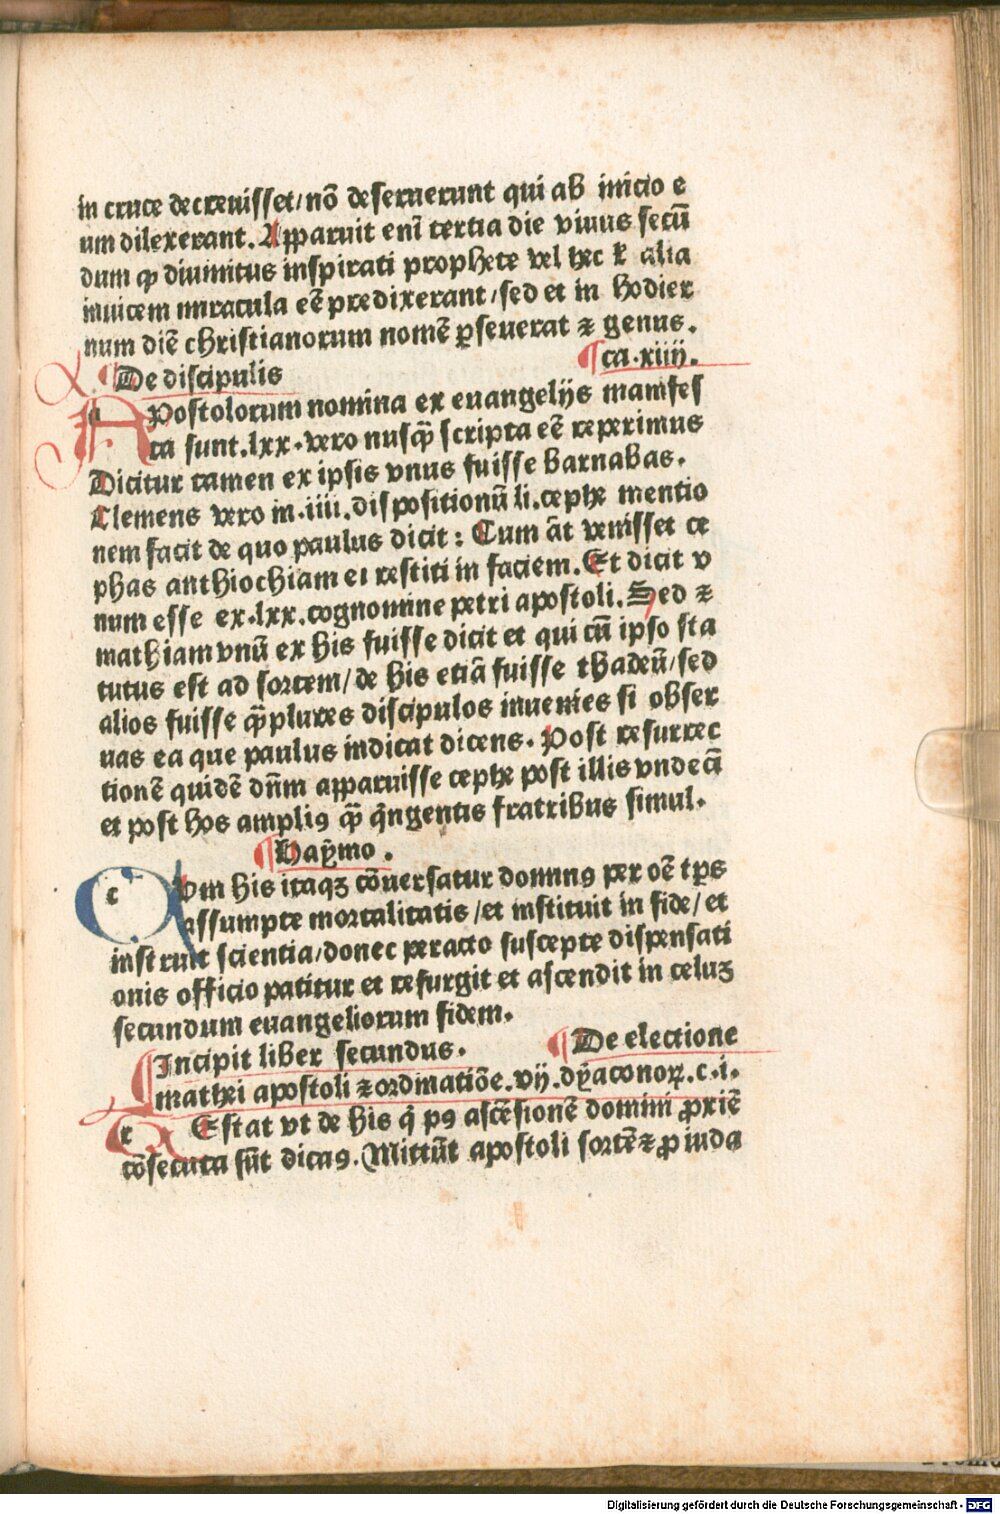 in cruce decreuisset/nō deseruerunt qui ab inicio e
um dilexerant. Apparuit enī tertia die viuus secū
dum ꝙ diuinitus inspirati prophete vel hec ꝛ alia
inuicem miracula eē predixerant/sed et in hodier
num diē christianorum nomē ꝑseuerat ꝛ genus.
De discipulis ca.xiiij.
a Postolorum nomina ex euangelijs manifes
ta sunt.lxx.vero nusq̄ scripta eē reperimus
Dicitur tamen ex ipsis vnus fuisse barnabas.
Clemens vero in.iiii.dispositionū li.cephe mentio
nem facit de quo paulus dicit: Cum āt venisset ce
phas anthiochiam ei restiti in faciem. Et dicit v
num esse ex.lxx.cognomine petri apostoli. Sed ꝛ
mathiam vnū ex his fuisse dicit et qui cū ipso sta
tutus est ad sortem/de his etiā fuisse thadeū/sed
alios fuisse q̄plures discipulos inuenies si obser
uas ea que paulus indicat dicens. Post resurrec
tionē quidē dn̄m apparuisse cephe post illis vndecī
et post hos ampliꝰ q̄ q̄ngentis fratribus simul.
Haȳmo.
c Vm his itaqꝫ cōuersatur dominꝰ per oē tp̄s
assumpte mortalitatis/et instituit in fide/et
instruit scientia/donec peracto suscepte dispensati
onis officio patitur et resurgit et ascendit in celuꝫ
secundum euangeliorum fidem.
Incipit liber secundus. De electione
mathei apostoli ꝛ ordinatiōe.vij.dȳaconoꝝ.c.i.
r Estat vt de his q̄ pꝰ ascēsionē domini ꝓxiē
cōsecuta sūt dicaꝰ. Mittūt apostoli sortē ꝛ ꝓ iuda
Digitalisierung gefördert durch die Deutsche Forschungsgemeinschaft - DFG